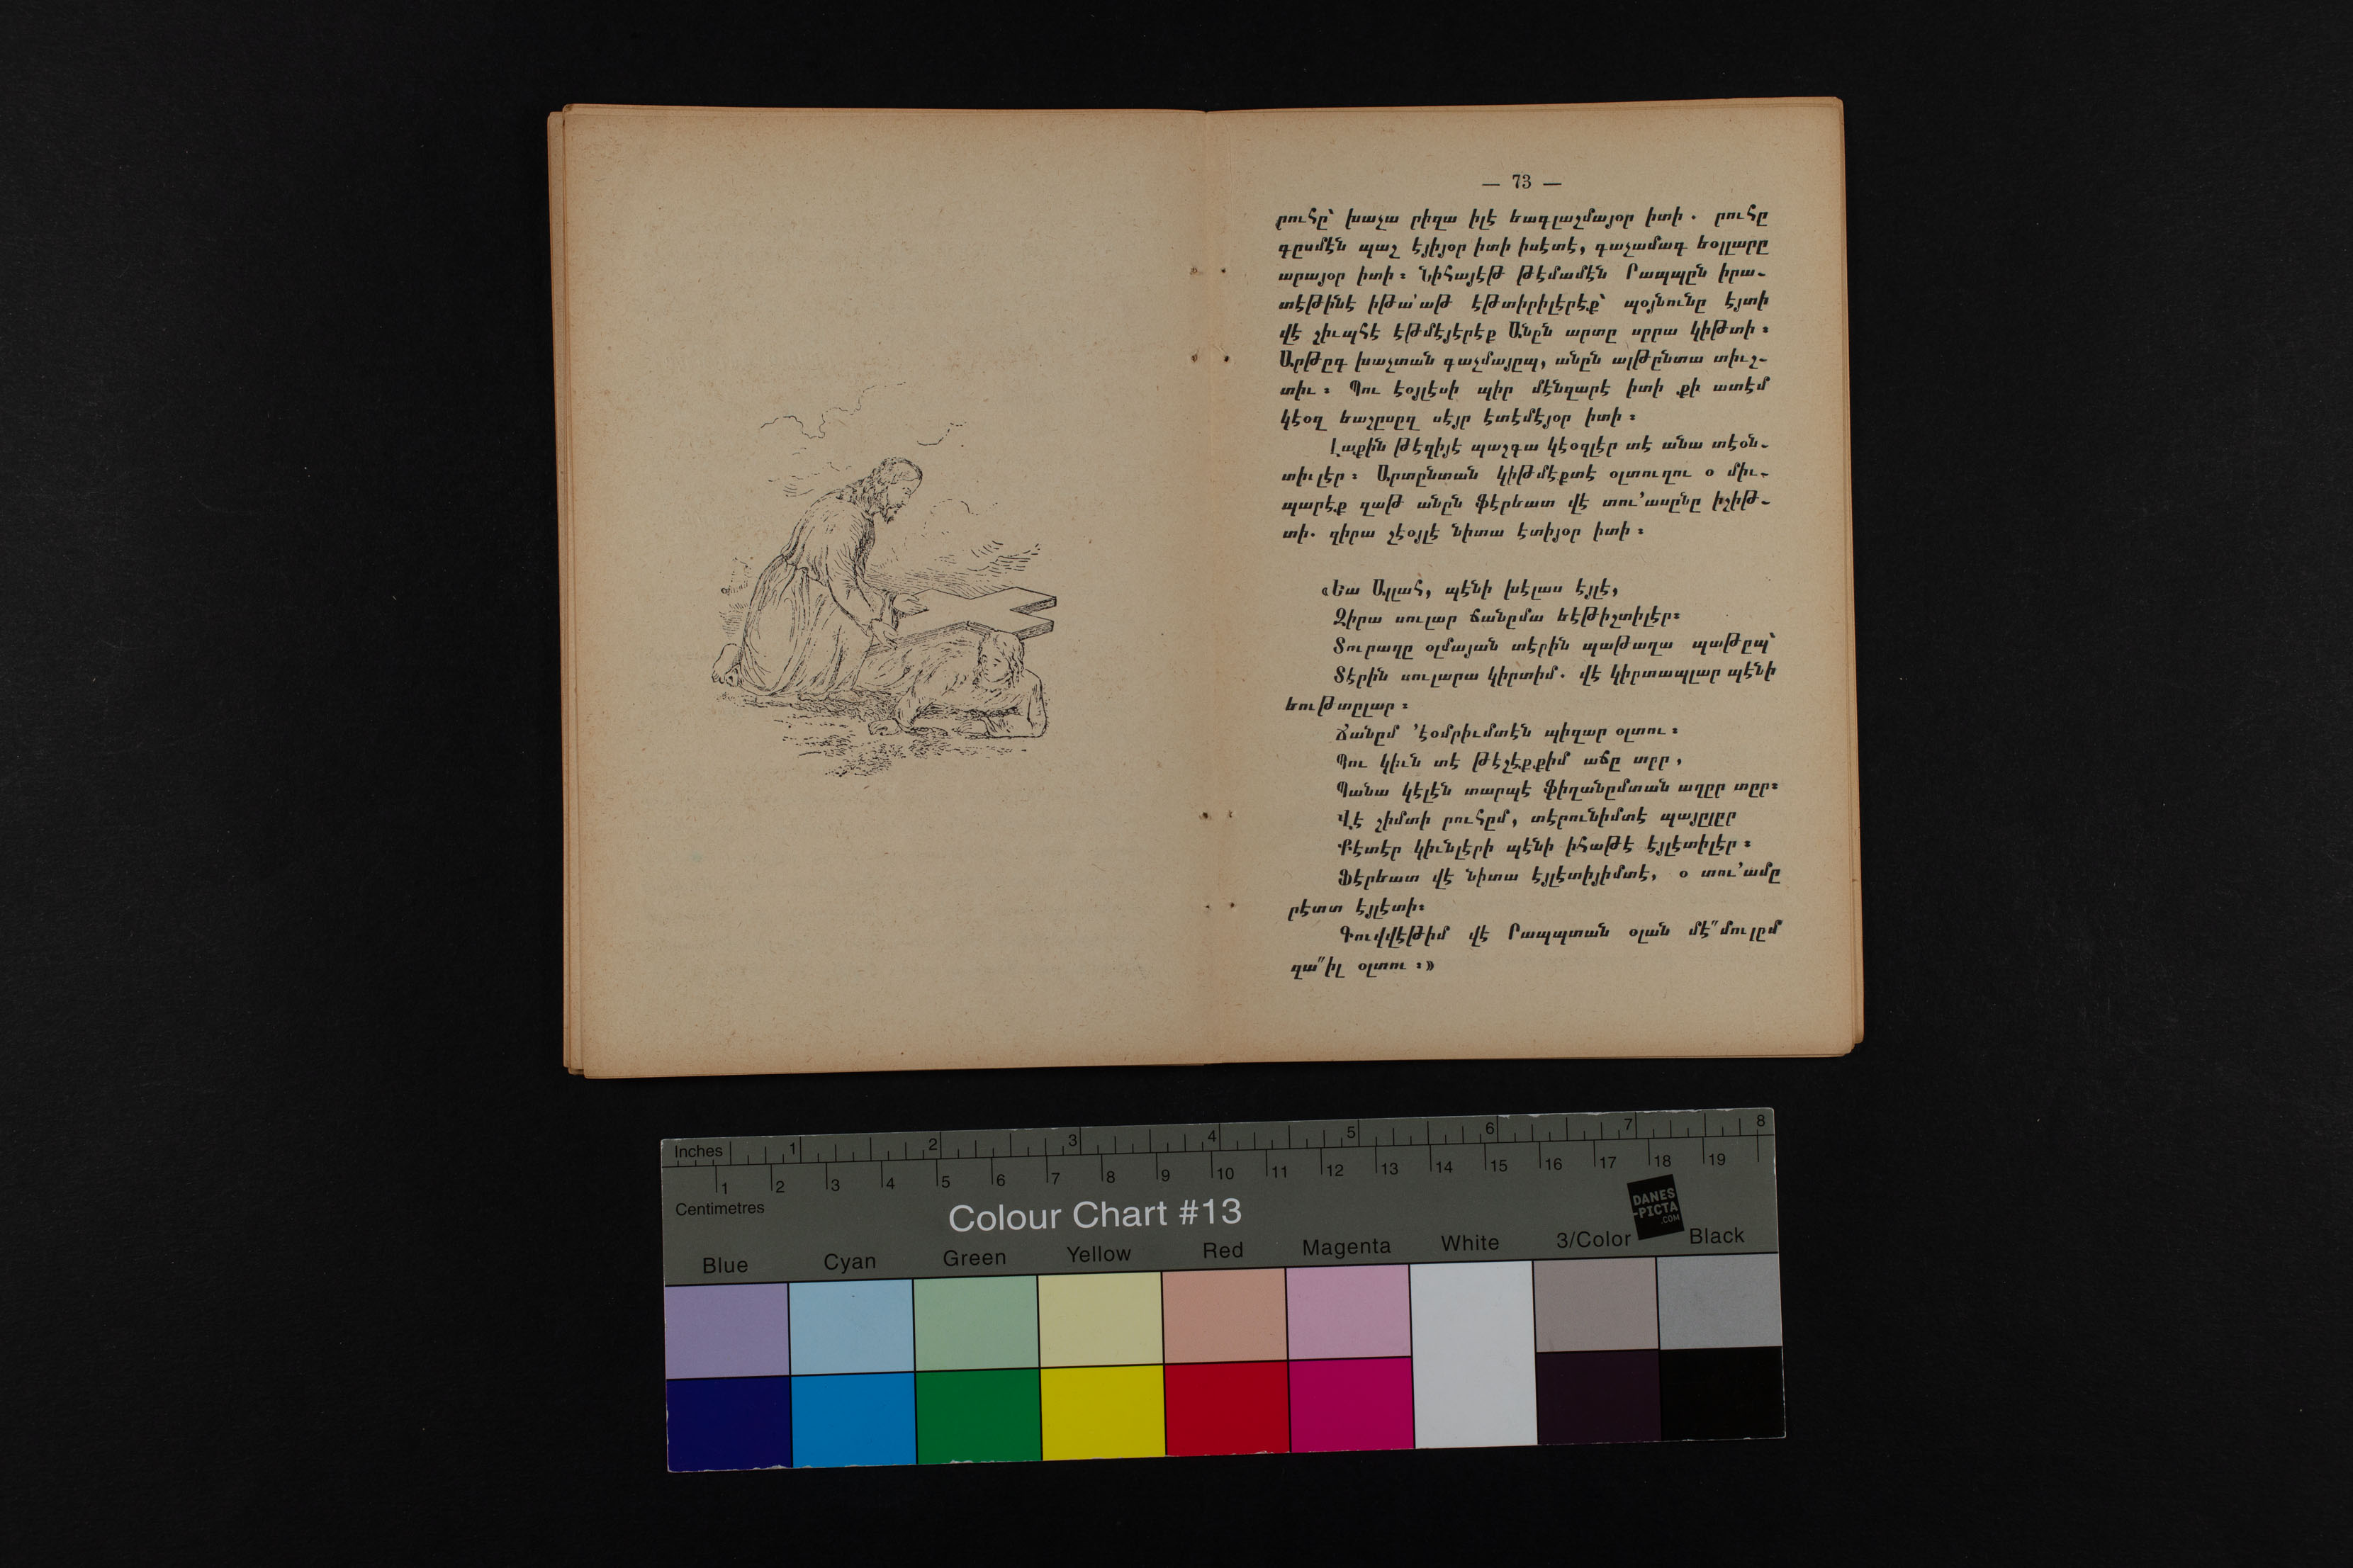 — 73 —
րուհը՝ խաչա րիզա իլէ եագլաշմայօր իտի. րուհը
գըսմէն պաշ էյիյօր իտի իսէտէ, գաչամագ եօլլարը
արայօր իտի։ Նիհայէթ թէմամէն Րապպըն իրա-
տէթինէ իթա՛աթ էթտիրիլէրէք՝ պօյնունը էյտի
վէ շիւպհէ էթմէյէրէք Անըն արտը սըրա կիթտի։
Արթըգ խաչտան գաչմայըպ, անըն ալթընտա տիւշ-
տիւ։ Պու էօյլէսի պիր մէնզարէ իտի քի ատէմ
կէօզ եաշըսըզ սէյր էտէմէյօր իտի։
Լաքին թէզիյէ պաշգա կէօզլէր տէ անա տէօն-
տիւլէր։ Արտընտան կիթմէքտէ օլտուղու օ միւ-
պարէք զաթ անըն ֆէրեատ վէ տու՚ասընը իշիթ-
տի. զիրա շէօյլէ նիտա էտիյօր իտի։
«Եա Ալլահ, պէնի խէլաս էյլէ,
Զիրա սուլար ճանըմա եէթիշտիլէր։
Տուրաղը օլմայան տէրին պաթաղա պաթըպ՝
Տէրին սուլարա կիրտիմ. վէ կիրտապլար պէնի
եութտըլար։
Ճանըմ ՚էօմրիւմտէն պիզար օլտու։
Պու կիւն տէ թէշէքքիմ աճը տըր,
Պանա կէլէն տարպէ ֆիղանըմտան աղըր տըր։
Վէ շիմտի րուհըմ, տէրունիմտէ պայըլըր
Քէտէր կիւնլէրի պէնի իհաթէ էյլէտիլէր։
Ֆէրեատ վէ նիտա էյլէտիյիմտէ, օ տու՚ամը
րէտտ էյլէտի։
Գուվվէթիմ վէ Րապպտան օլան մէ՛՛մուլըմ
զա՛՛իլ օլտու։»
Inches 1 2 3 4 5 6 7 8
1 2 3 4 5 6 7 8 9 10 11 12 13 14 15 16 17 18 19
Centimetres
Colour Chart #13
DANES
-PICTA
.COM
Blue Cyan Green Yellow Red Magenta White 3/Color Black